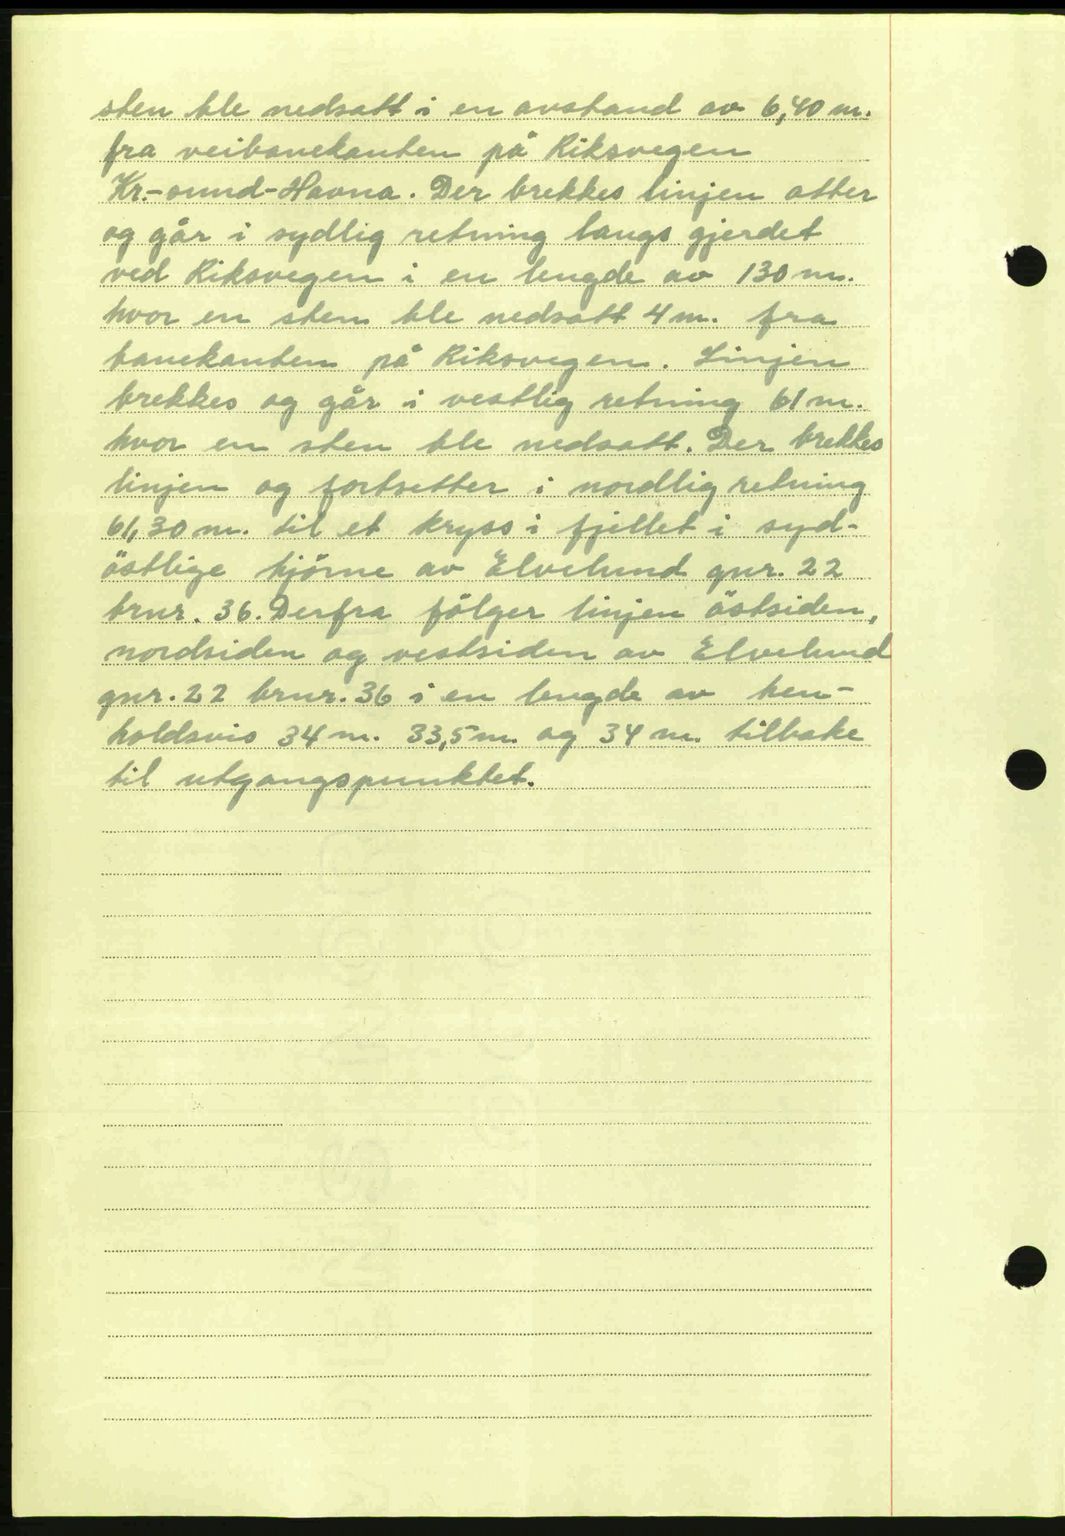 sten ble nedsatt i en avstand av 6,40 m.
fra veibanekanten på Riksvegen
Kr.-sund-Havna. Der brekkes linjen atter
og går i sydlig retning langs gjerdet
ved Riksvegen i en lengde av 130 m.
hvor en sten ble nedsatt 4 m. fra
banekanten på Riksvegen. Linjen
brekkes og går i vestlig retning 61 m.
hvor en sten ble nedsatt. Der brekkes
linjen og fortsetter i nordlig retning
61,30 m. til et kryss i fjellet i syd-
östlige hjörne av Elvelund gnr. 22
brnr. 36. Derfra fölger linjen östsiden,
nordsiden og vestsiden av Elvelund
gnr. 22 brnr. 36 i en lengde av hen-
holdsvis 34 m. 33,5 m. og 34 m. tilbake
til utgangspunktet.